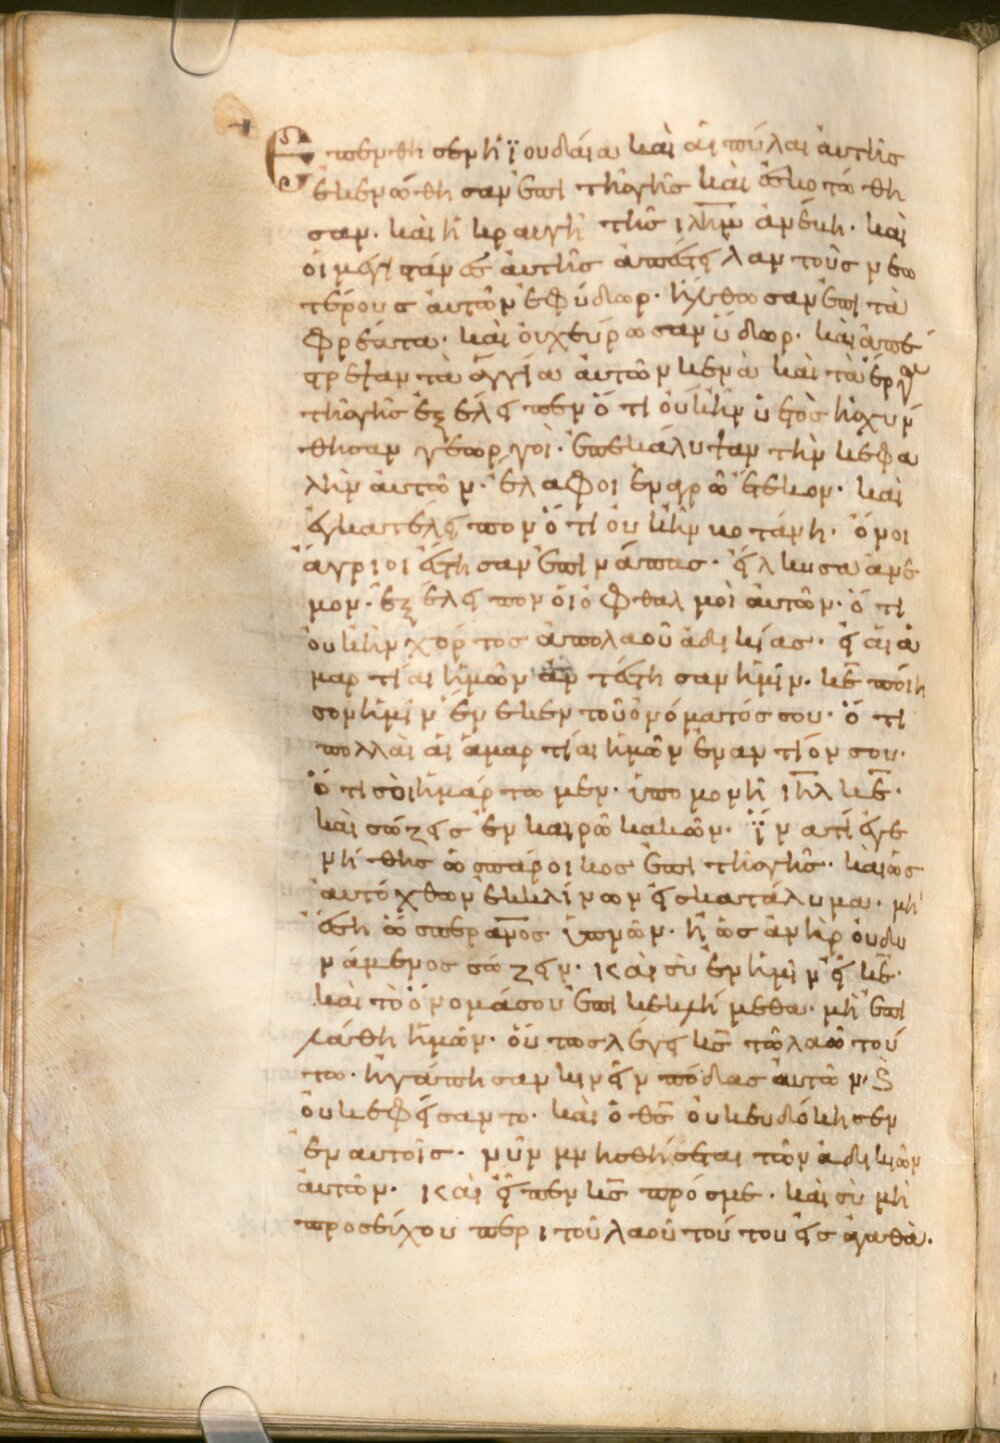 Επενθησεν ἡ ϊουδάια καὶ ἁι πύλαι ἀυτῆς
ἐκενώθησαν ἐπὶ τῆς γῆς καὶ ἐσκοτώθη
σαν. καὶ ἡ κραυγὴ τῆς ιλημ ἀνέβη. καὶ
ὁι μεγιστάνες ἀυτῆς ἀπέστειλαν τοὺς νεω
τέρους ἀυτῶν ἐφ ύδωρ. ἤλθωσαν ἐπὶ τὰ
φρέατα. καὶ ὀυχ εύρωσαν ύδωρ. καὶ ἀπέ
στρεψαν τὰ ἀγγία ἀυτῶν κενὰ καὶ τὰ έργα
τῆς γῆς ἐξέλειπεν ὅτι ὀυκ ἦν ὑετὸς ἠσχύν
θησαν γεωργοὶ. ἐπεκάλυψαν τὴν κεφα
λὴν ἀυτῶν. ἔλαφοι ἐν αγρῶ ἔτεκον. καὶ
ἐγκατέλειπον ὅτι ὀυκ ἦν βοτάνη. ὄνοι
ἄγριοι ἔστησαν ἐπὶ νάπας. εἵλκυσαν ἄνε
μον. ἐξέλειπον ὁι ὀφθαλμοὶ ἀυτῶν. ὅτι
ὀυκ ἦν χόρτος ἀπο λαοῦ ἀδικίας. εἰ ἁι ἁ
μαρτίαι ἡμῶν ἀντέστησαν ἡμῖν. κε ποίη
σον ἡμῖν ἕνεκεν τοῦ ὀνόματός σου. ὅτι
πολλαὶ ἁι ἁμαρτίαι ἡμῶν ἐναντίον σου.
ὅτι σοὶ ἡμάρτωμεν. ὑπομονὴ ιηλ κε.
καὶ σώζεις ἐν καιρῶ κακῶν. ϊνατί ἐγε
νήθης ὡσ πάροικος ἐπὶ τῆς γῆς. καὶ ὡς
ἀυτόχθων ἐκκλίνων εἰς κατάλυμα. μὴ
ἔση ὥσπερ ανος ὑπνῶν. ἢ ὡς ἀνὴρ ὀυ δυ
νάμενος σώζειν. καὶ σὺ ἐν ἡμῖν εἶ κε.
καὶ τὸ ὄνομά σου ἐπικέκληται ἐφ ἡμᾶς. μὴ ἐπι
λάθη ἡμῶν. ὅυτως λέγει κς τῶ λαῶ τού
τω. ἠγάπησαν κινεῖν πόδας ἀυτῶν. ϗ
ὀυκ ἐφείσαντο. καὶ ὁ θς ὀυκ ευδόκησεν
ἐν αυτοῖς. νῦν μνησθήσεται τῶν ἀδικιῶν
ἀυτῶν. καὶ εἶπεν κς πρός με. καὶ σὺ μὴ
προσεύχου περι τοῦ λαοῦ τούτου εἰς ἀγαθὰ.